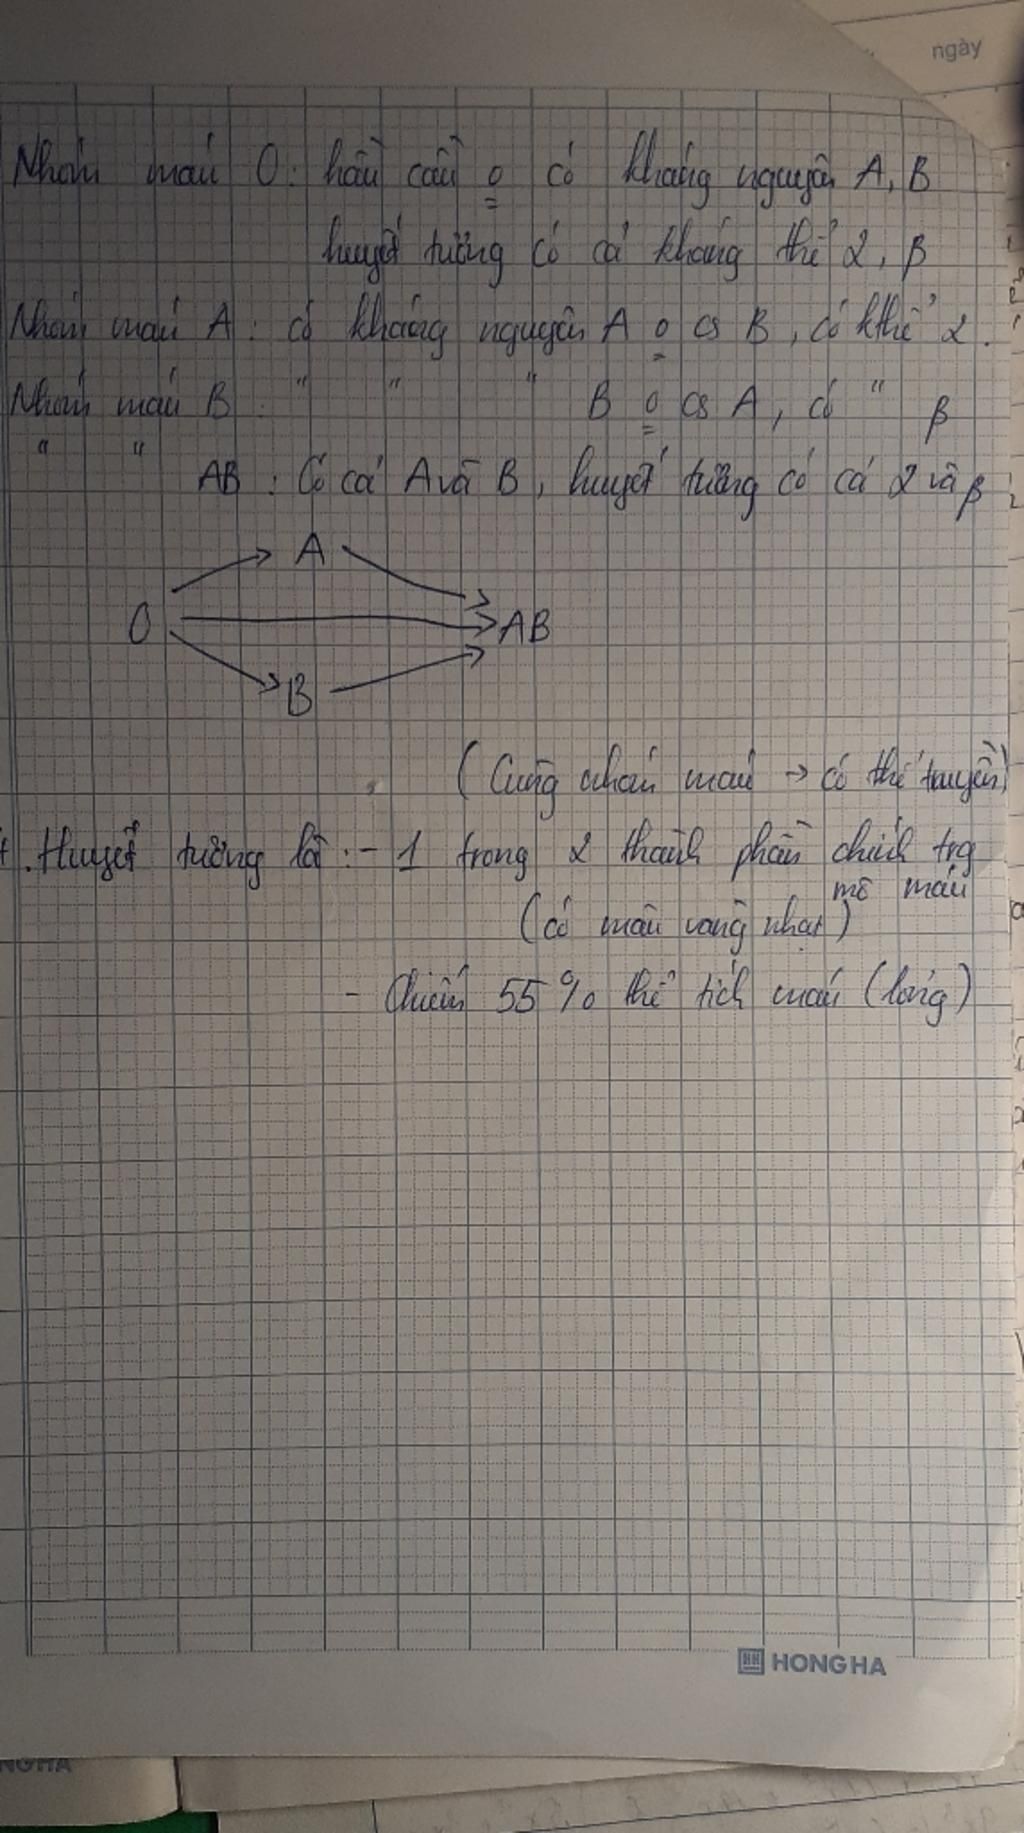 ngày
Nhóm máu O: hồng cầu o có kháng nguyên A, B
huyết tương có cả kháng thể α, β
Nhóm máu A: có kháng nguyên A o có B, có kthể α.
Nhóm máu B: " " " B o có A, có " β
" " AB: Có cả A và B, huyết tương có cả α và β
A
O AB
B
(Cùng nhóm máu → có thể truyền)
Huyết tương là: - 1 trong 2 thành phần chính trg
mô máu
(có màu vàng nhạt)
- Chiếm 55% thể tích máu (lỏng)
HONG HA